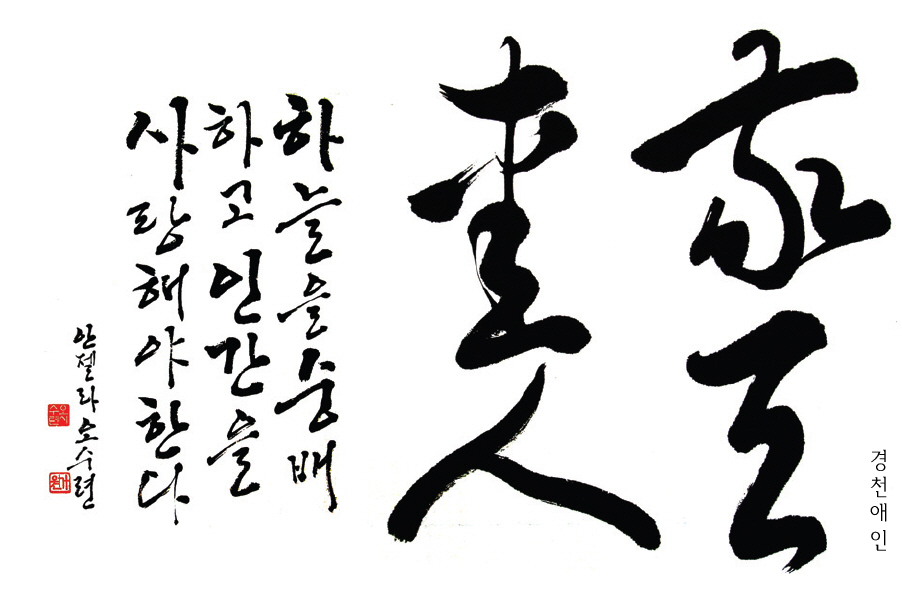 경천애인
敬天
愛人
하늘을숭배
하고인간을
사랑해야한다
안젤라오수련